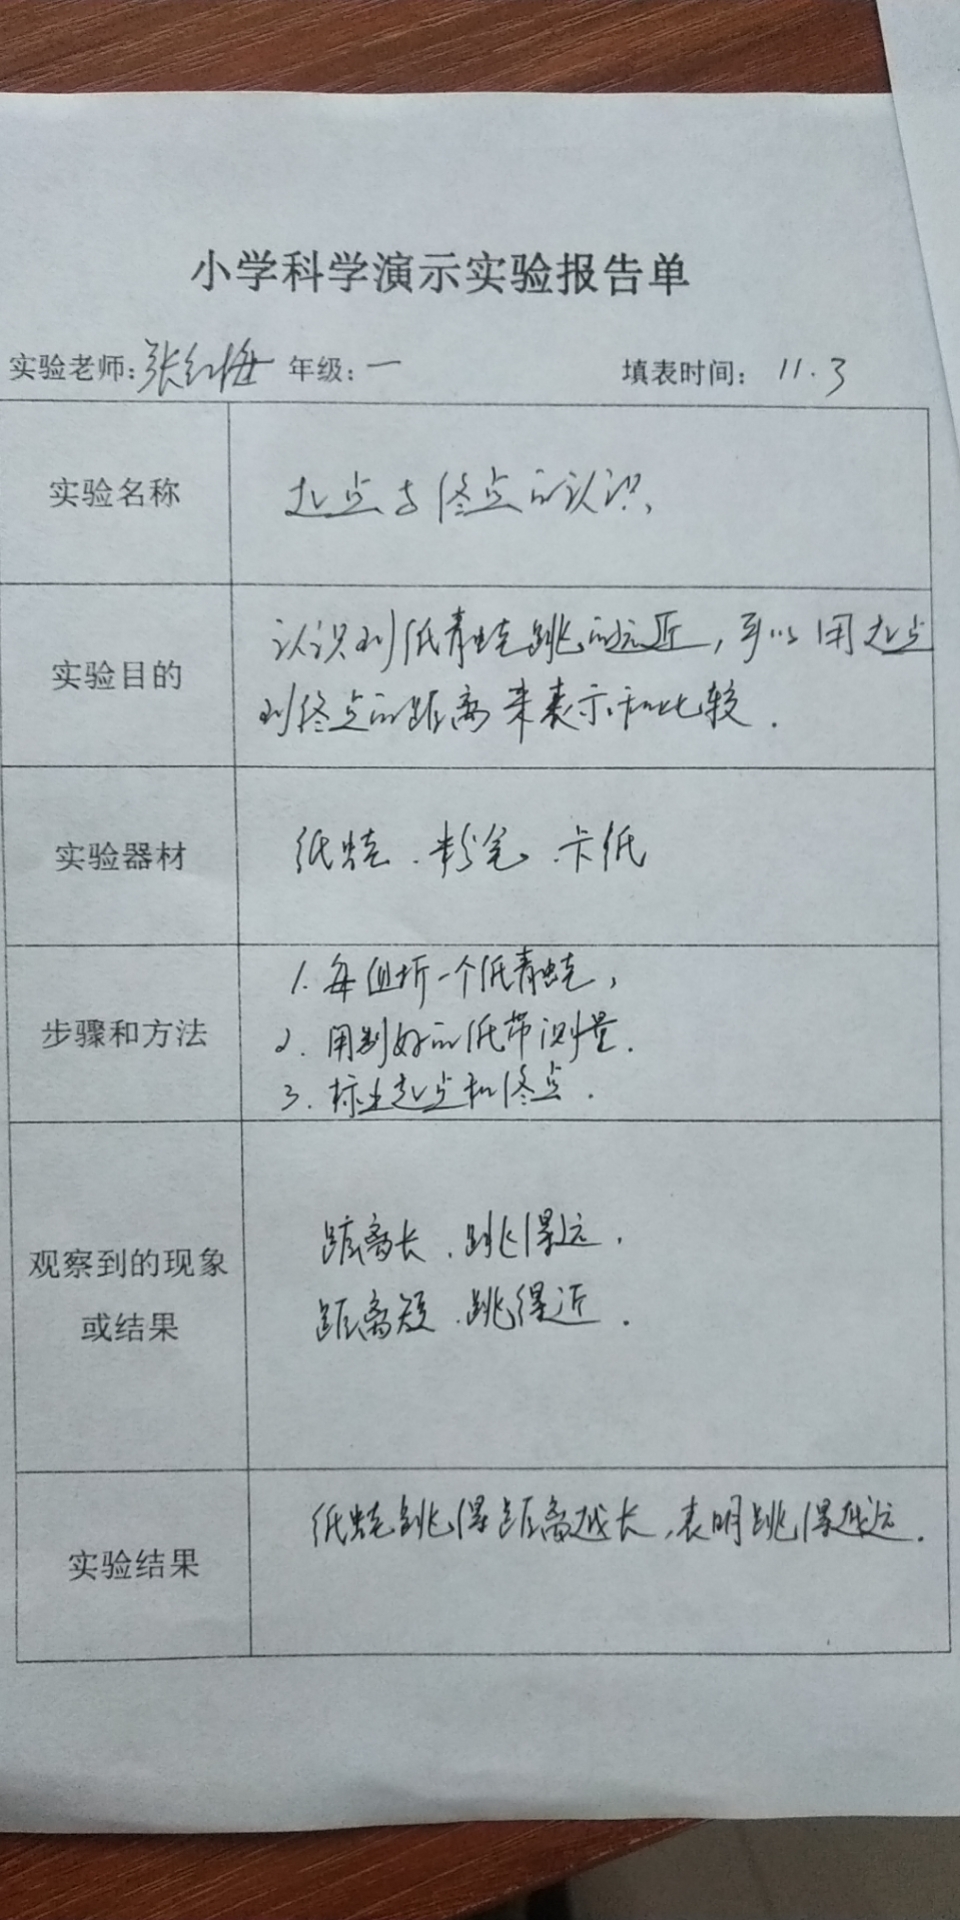 小学科学演示实验报告单
实验老师:张红梅 年级:一 填表时间: 11.3
实验名称 起点与终点的认识.
实验目的 认识到纸青蛙跳的远近,可以用起点
到终点的距离来表示和比较.
实验器材 纸蛙.粉笔.卡纸
步骤和方法 1.每组折一个纸青蛙,
2.用制好的纸带测量.
3.标出起点和终点.
观察到的现象
或结果
距离长.跳得远.
距离短.跳得近.
实验结果 纸蛙跳得距离越长,表明跳得越远.